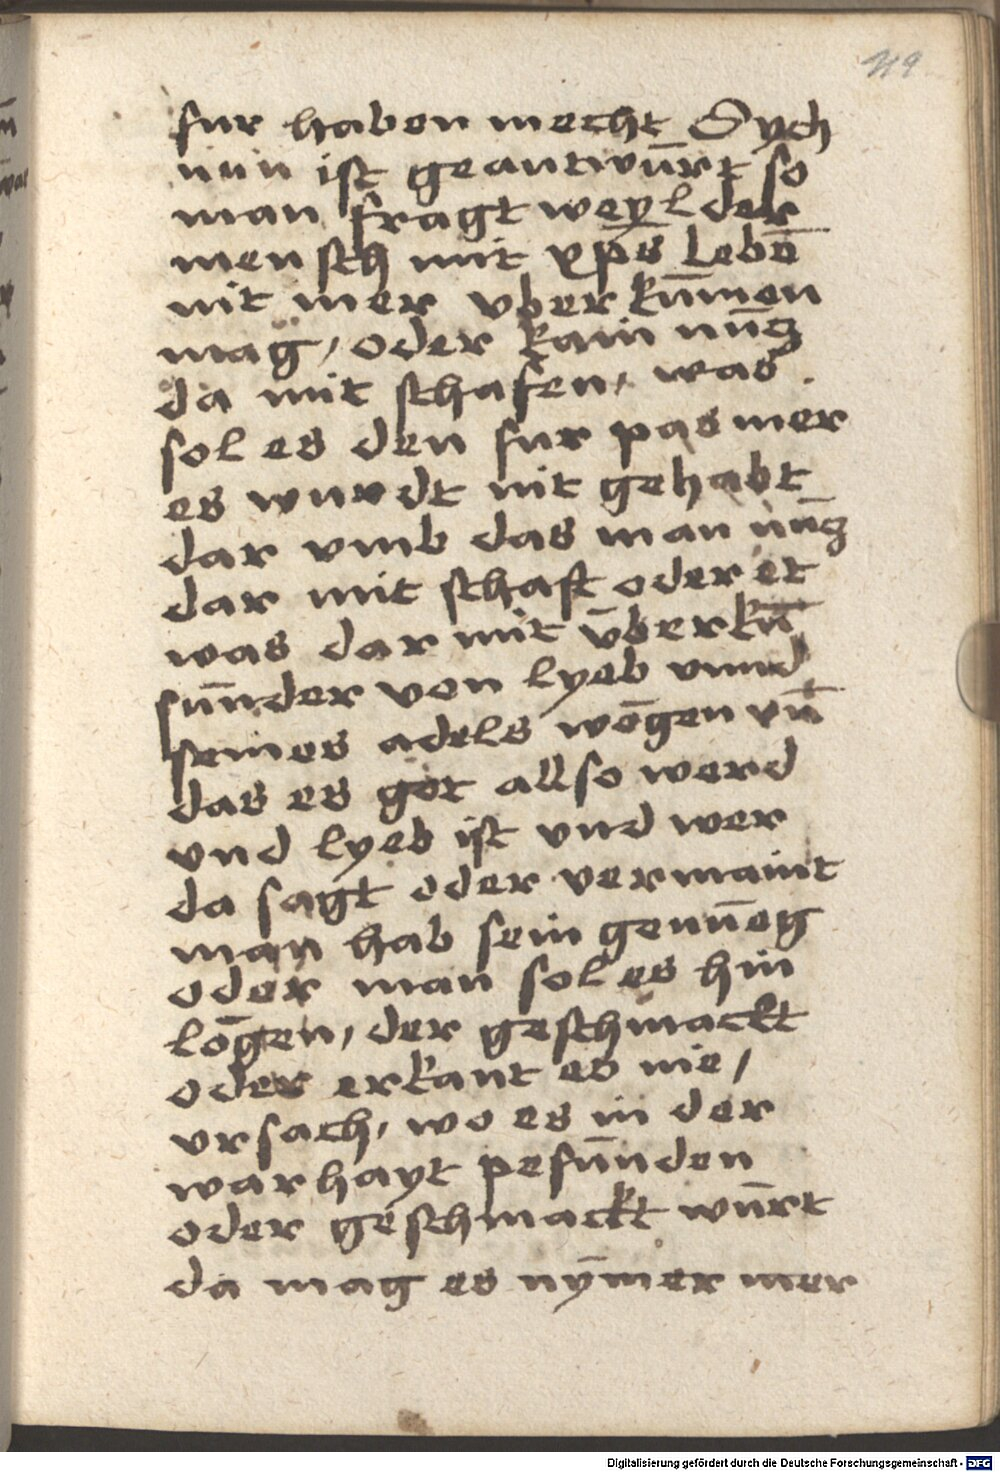 49
fur haben mecht Sych
nun ist geantwūrt so
man fragt weyl der
mensch mit xp̄s Lebē
nit mer vber kūmen
mag / oder kain nūcz
da mit schafen / was
sol es den fur pas mer
es wurdt nit gehabt
dar vmb das man nūcz
dar mit schaft oder et
was dar mit v̄berkū
sūnder von lyeb vnnd
seines adels wēgen vn̄
das es got allso werd
vnd lyeb ist vnd wer
da sagt oder vermaint
man hab sein genūeg
oder man sol es hin
lōgen / der geschmackt
oder erkant es nie /
vrsach / wo es in der
warhayt pefūnden
oder geschmackt wūrt
da mag es nȳmer mer
Digitalisierung gefördert durch die Deutsche Forschungsgemeinschaft - DFG